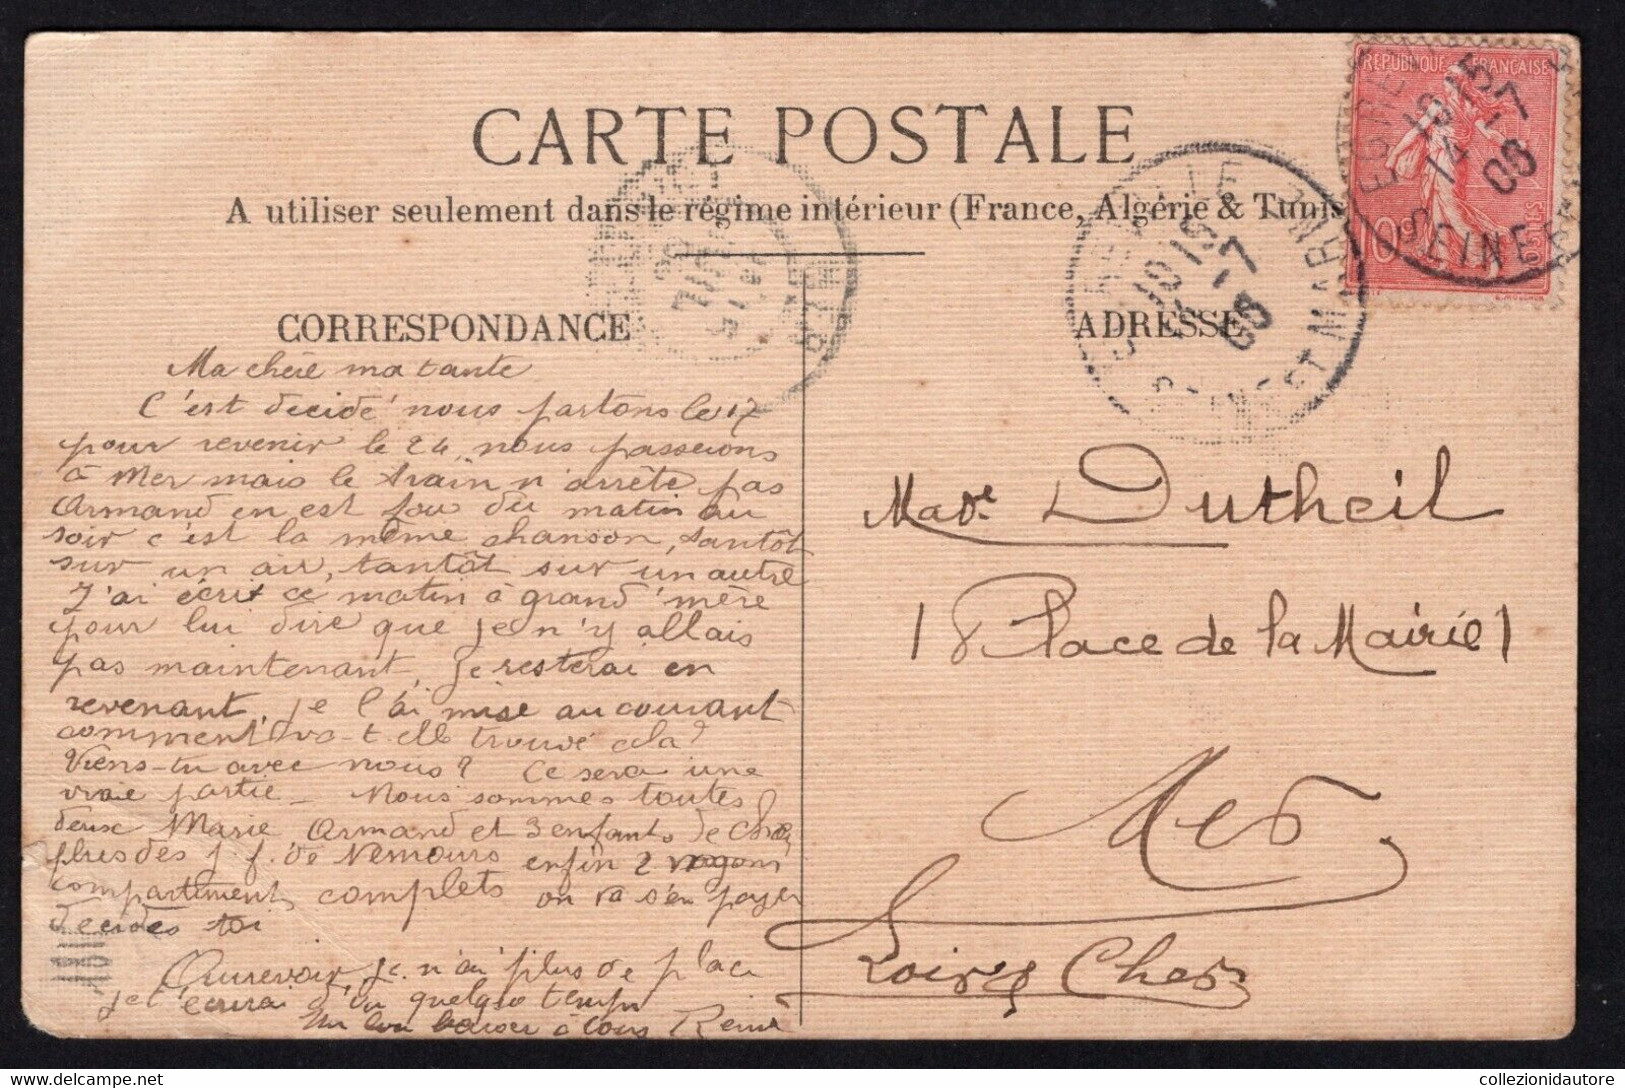 CARTE POSTALE
A utiliser seulement dans le régime intérieur (France, Algérie & Tunis
RÉPUBLIQUE FRANÇAISE
10c
POSTES
SEINE
14 -7
06
-7
06
CORRESPONDANCE
ADRESSE
Ma chére ma tante
C'est decidé nous partons le 17
pour revenir le 24, nous passerons
à Mer mais le train n'arrête pas
Armand en est fou du matin au
soir c'est la même chanson, tantôt
sur un air, tantôt sur un autre
J'ai écrit ce matin à grand'mère
pour lui dire que je n'y allais
pas maintenant, Je resterai en
revenant, je l'ai mise au courant
comment va-t-elle trouvé cela?
Viens-tu avec nous? Ce sera une
vraie partie - Nous sommes toutes
deux Marie Armand et 3 enfants de
plus des j. f. de Nemours enfin 2 wagons
compartiments complets on va s'en payer
decides toi
Aurevoir, Je n'ai plus de place
je t'écrirai d'ici quelque temps
Un bon baiser à tous
Made Dutheil
18 Place de la Mairie
Mer
Loir et Cher
delcampe.net
collezionidautore